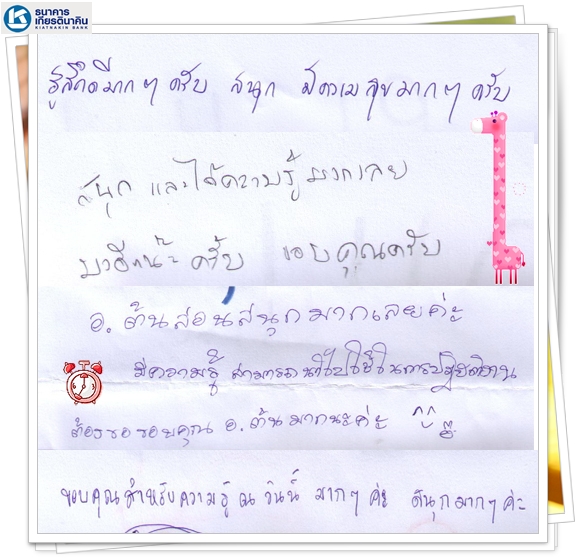 ธนาคาร
เกียรตินาคิน
KIATNAKIN BANK
รู้สึกดีมากๆ ครับ สนุก มีความสุขมากๆ ครับ
สนุก และได้ความรู้มากเลย
มาอีกน๊ะครับ ขอบคุณครับ
อ. ต้นสอนสนุกมากเลยค่ะ
มีความรู้ สามารถนำไปใช้ในการปฏิบัติงาน
ต้องขอขอบคุณ อ. ต้นมากนะค่ะ
ขอบคุณสำหรับความรู้ ณ วันนี้ มากๆ ค่ะ สนุกมากๆ ค่ะ